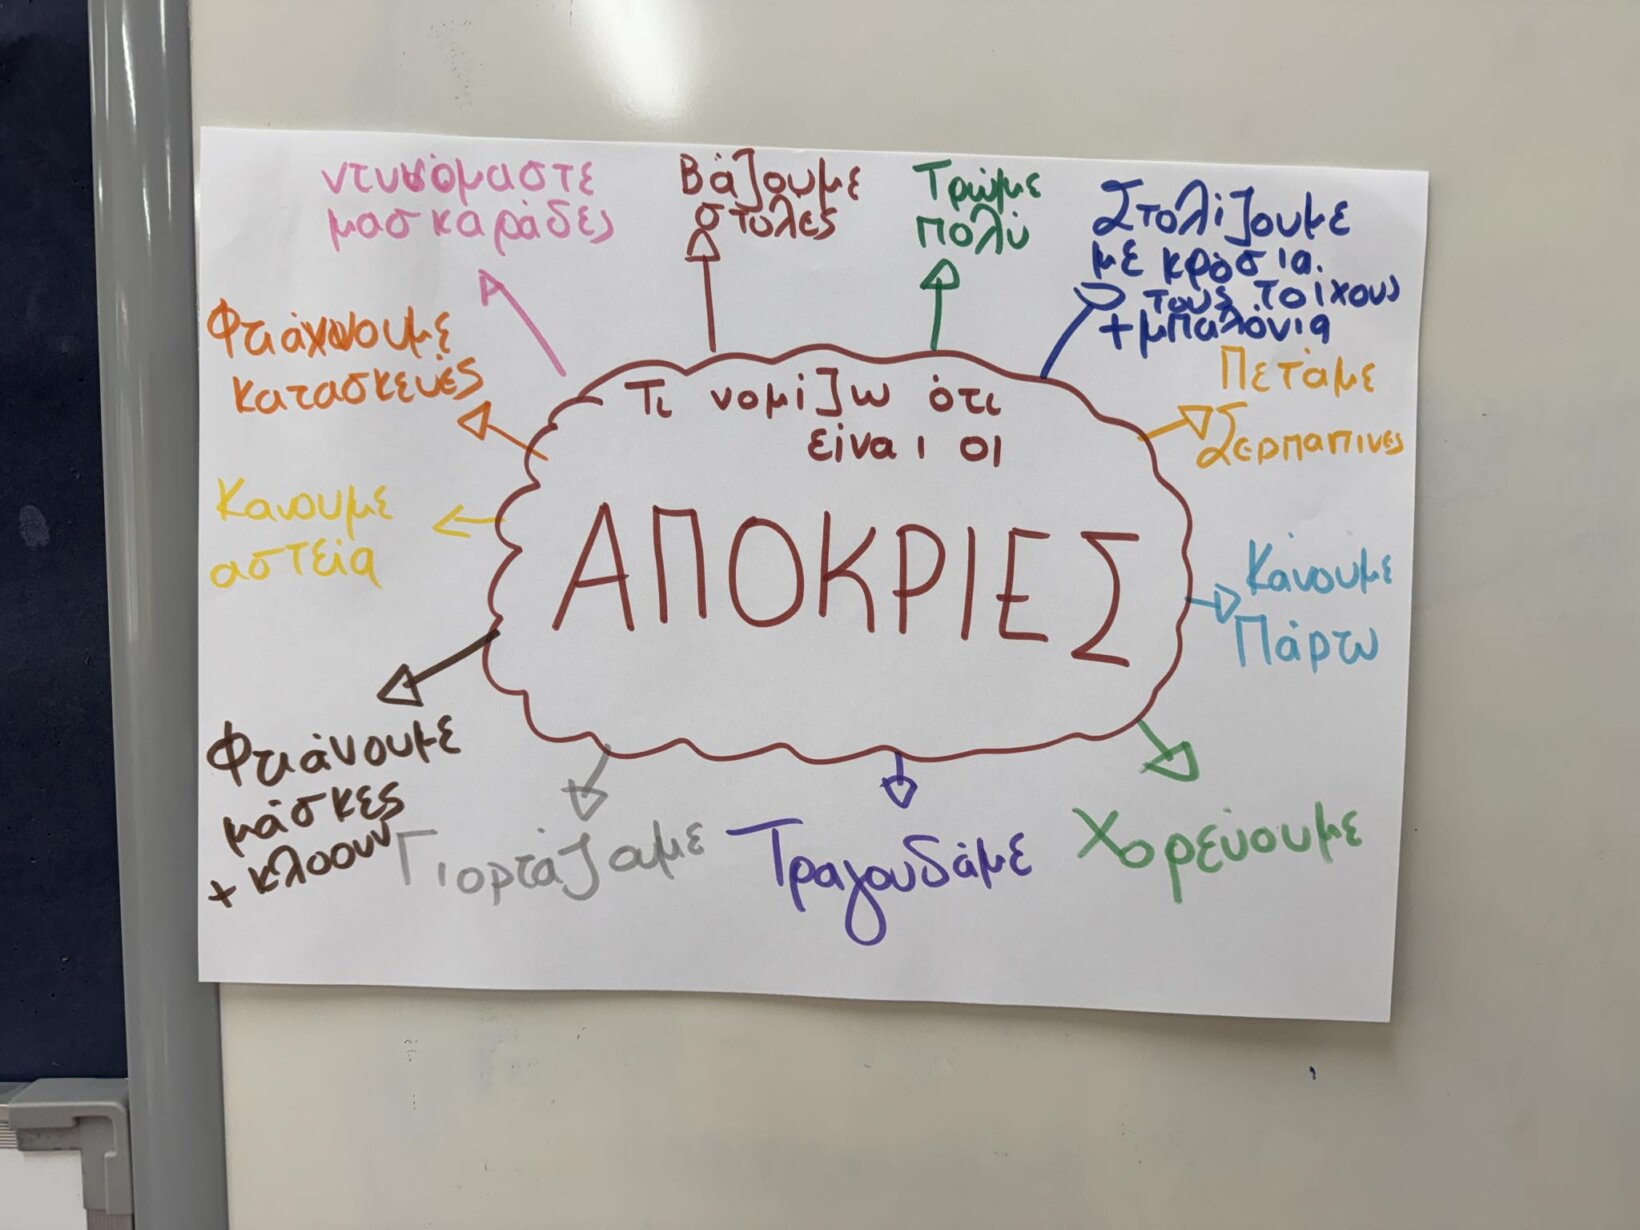 Τι νομίζω ότι
είναι οι
ΑΠΟΚΡΙΕΣ
ντυνόμαστε
μασκαράδες
Βάζουμε
στολες
Τρώμε
πολύ
Στολίζουμε
με κρόσια.
τους τοίχους
+ μπαλόνια
Πετάμε
Σερπαπινες
Κάνουμε
Πάρτυ
Χορεύουμε
Τραγουδάμε
Γιορτάζουμε
Φτιάνουμε
μάσκες
+ κλοουν
Κανουμε
αστεία
Φτιάχνουμε
κατασκευές